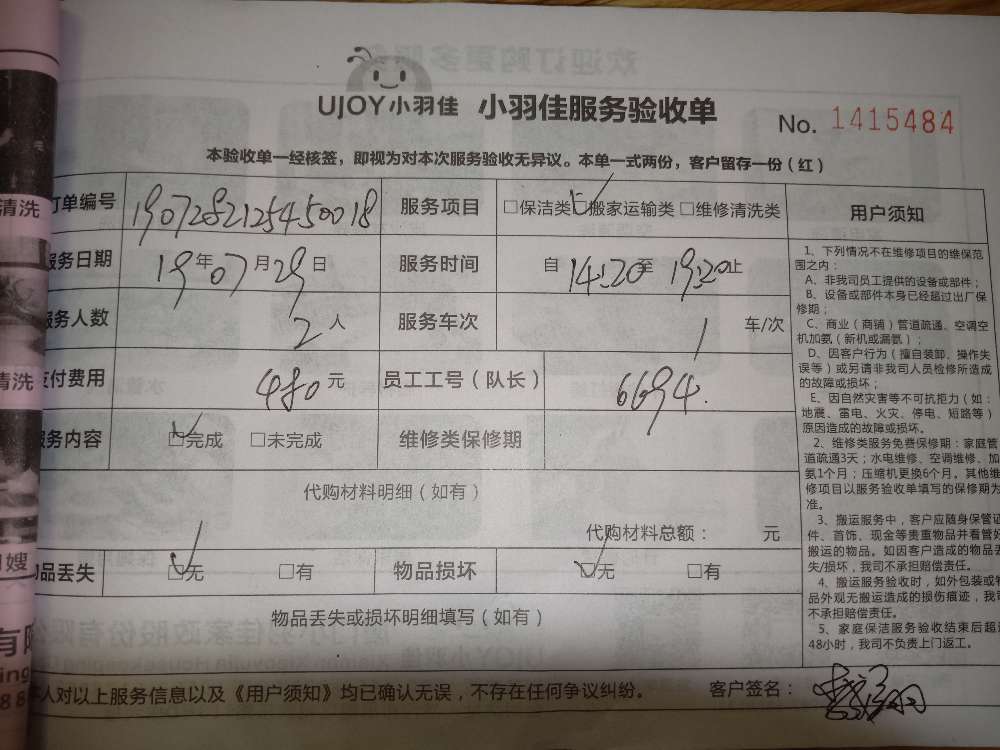 UJOY小羽佳 小羽佳服务验收单 No. 1415484
本验收单一经核签，即视为对本次服务验收无异议。本单一式两份，客户留存一份（红）
订单编号 1907282125450018 服务项目 □保洁类 ☑搬家运输类 □维修清洗类
服务日期 19年07月29日 服务时间 自14:20至19:20止
服务人数 2人 服务车次 1车/次
支付费用 480元 员工工号（队长） 6694.
服务内容 ☑完成 □未完成 维修类保修期
代购材料明细（如有）
代购材料总额： 元
物品丢失 ☑无 □有 物品损坏 ☑无 □有
物品丢失或损坏明细填写（如有）
人对以上服务信息以及《用户须知》均已确认无误，不存在任何争议纠纷。 客户签名：
用户须知
1、下列情况不在维修项目的维保范
围之内：
A、非我司员工提供的设备或部件；
B、设备或部件本身已经超过出厂保
修期；
C、商业（商铺）管道疏通、空调空
机加氨（新机或漏氨）；
D、因客户行为（擅自装卸、操作失
误等）或另请非我司人员检修所造成
的故障或损坏；
E、因自然灾害等不可抗拒力（如：
地震、雷电、火灾、停电、短路等）
原因造成的故障或损坏。
2、维修类服务免费保修期：家庭管
道疏通3天；水电维修、空调维修、加
氨1个月；压缩机更换6个月。其他维
修项目以服务验收单填写的保修期为
准。
3、搬运服务中，客户应随身保管证
件、首饰、现金等贵重物品并看管好
搬运的物品。如因客户造成的物品丢
失/损坏，我司不承担赔偿责任。
4、搬运服务验收时，如外包装或物
品外观无搬运造成的损伤痕迹，我司
不承担赔偿责任。
5、家庭保洁服务验收结束后超过
48小时，我司不负责上门返工。
清洗
清洗
嫂
有限
ing
88